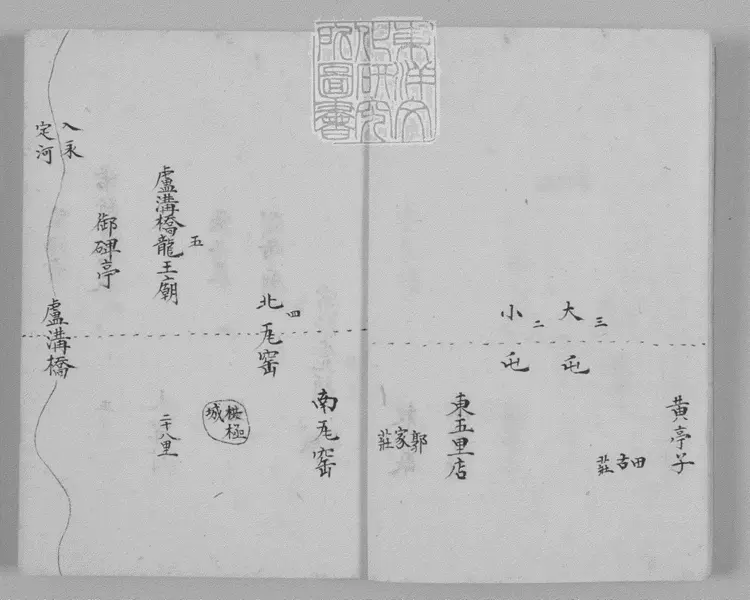 東洋文
化研究
所圖書
黃亭子
田古莊
三
大屯
二
小屯
東五里店
郭家莊
南瓦窑
四
北瓦窑
拱極
城
五
盧溝橋龍王廟
二十八里
御碑亭
入永
定河
盧溝橋